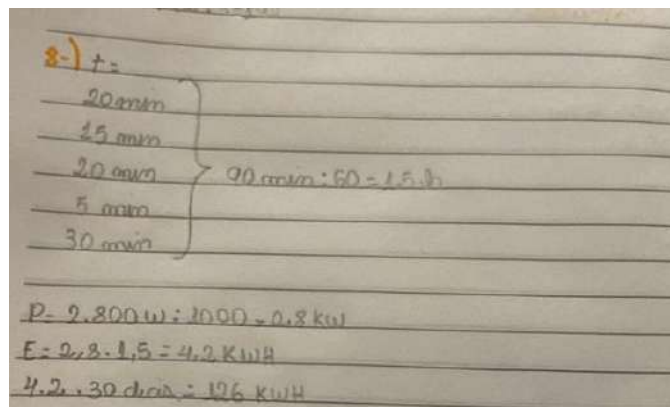 8-) t=
20 min
15 min
20 min
5 min
30 min
90 min : 60 = 1,5 h
P= 2.800 W : 1000 = 0,8 KW
E= 2,8 . 1,5 = 4,2 KWH
4,2 . 30 dias = 126 KWH